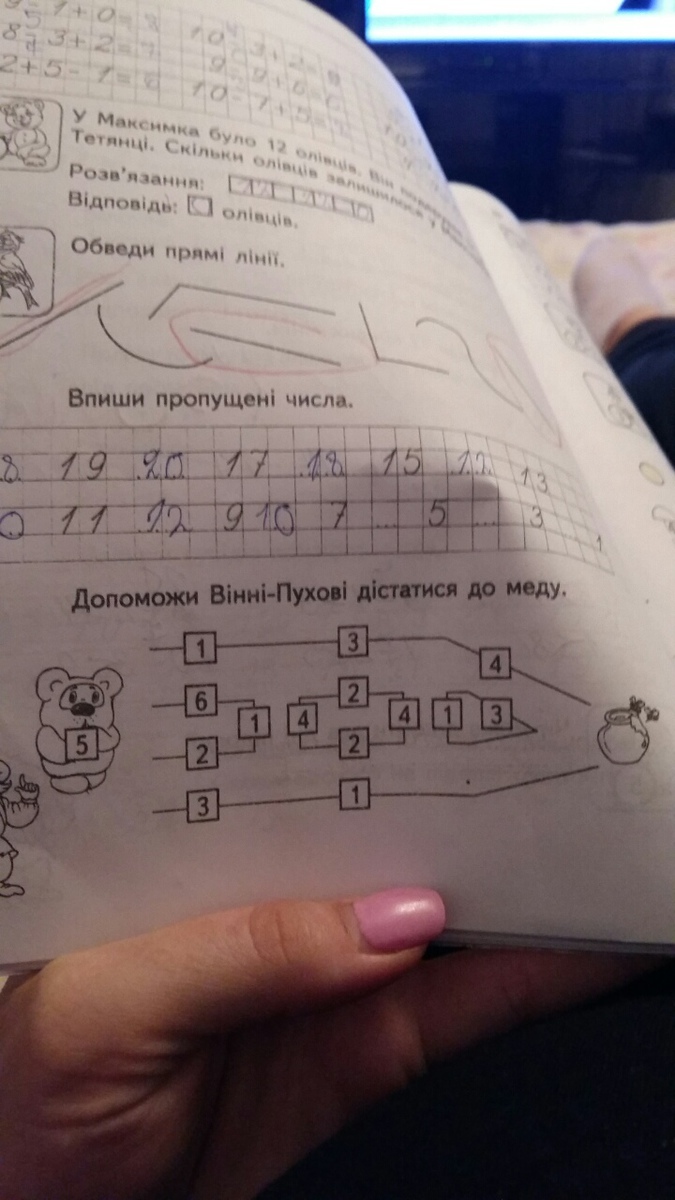 1 + 0 =
8 - 3 + 2 = 7 10 - 3 + 2 = 9
2 + 5 - 1 = 6 10 - 7 + 5 = 8
У Максимка було 12 олівців. Він
Тетянці. Скільки олівців залишилося у
Розв'язання:
Відповідь: олівців.
Обведи прямі лінії.
Впиши пропущені числа.
8 19 20 17 18 15 12 13
0 11 12 9 10 7 ... 5 ... 3 1
Допоможи Вінні-Пухові дістатися до меду.
1 3 4
6 2
5 1 4 4 1 3
2 2
3 1